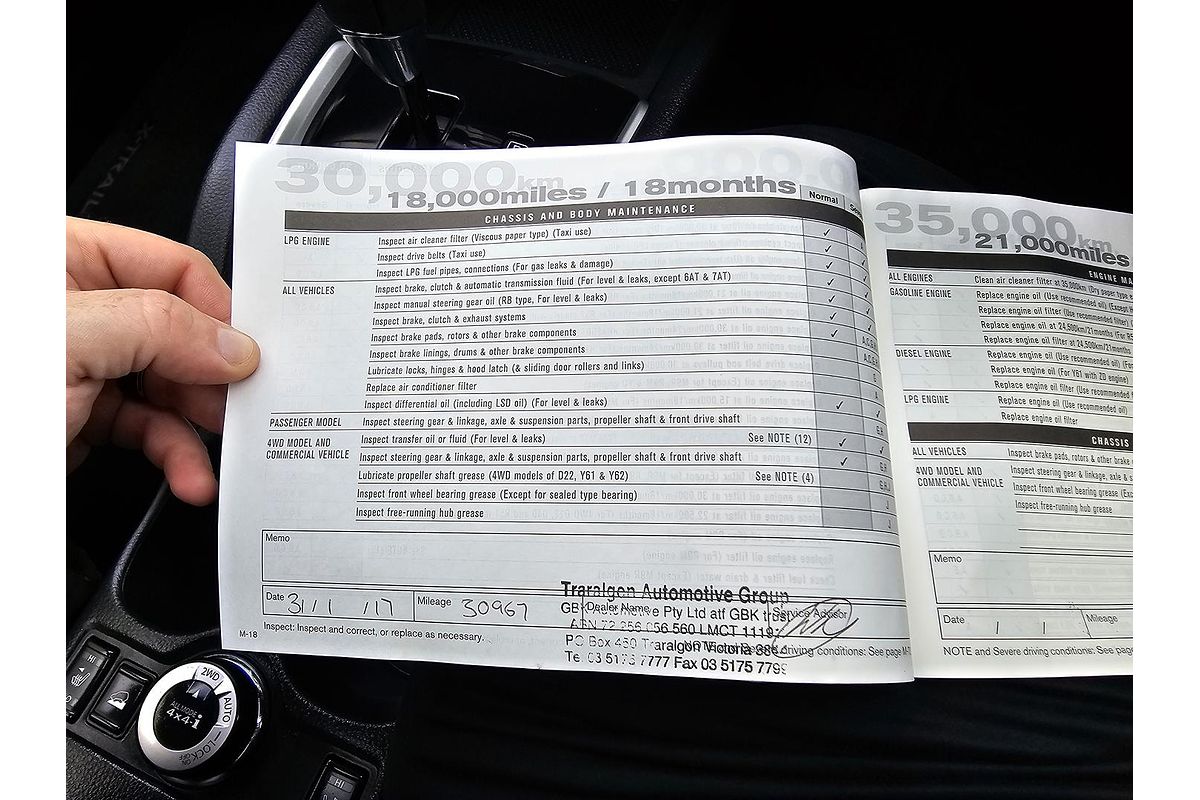 X-TRAIL
30,000km
18,000miles / 18months
Normal
CHASSIS AND BODY MAINTENANCE
LPG ENGINE Inspect air cleaner filter (Viscous paper type) (Taxi use) ✓
Inspect drive belts (Taxi use) ✓
Inspect LPG fuel pipes, connections (For gas leaks & damage) ✓
ALL VEHICLES Inspect brake, clutch & automatic transmission fluid (For level & leaks, except 6AT & 7AT) ✓
Inspect manual steering gear oil (RB type, For level & leaks) ✓
Inspect brake, clutch & exhaust systems ✓
Inspect brake pads, rotors & other brake components
Inspect brake linings, drums & other brake components
Lubricate locks, hinges & hood latch (& sliding door rollers and links)
Replace air conditioner filter
Inspect differential oil (including LSD oil) (For level & leaks) ✓
PASSENGER MODEL Inspect steering gear & linkage, axle & suspension parts, propeller shaft & front drive shaft
4WD MODEL AND COMMERCIAL VEHICLE Inspect transfer oil or fluid (For level & leaks) See NOTE (12) ✓
Inspect steering gear & linkage, axle & suspension parts, propeller shaft & front drive shaft ✓
Lubricate propeller shaft grease (4WD models of D22, Y61 & Y62) See NOTE (4)
Inspect front wheel bearing grease (Except for sealed type bearing)
Inspect free-running hub grease
Memo
Date 31/1/17 Mileage 30967 Dealer Name Service Advisor
Traralgon Automotive Group
GBK Automotive Pty Ltd atf GBK trust
ABN 72 256 056 560 LMCT 1119
PO Box 450 Traralgon Victoria 3844
Tel 03 5173 7777 Fax 03 5175 779
M-18
Inspect: Inspect and correct, or replace as necessary.
driving conditions: See page M-
35,000km
21,000miles
ENGINE MA
ALL ENGINES Clean air cleaner filter at 35,000km (Dry paper type
GASOLINE ENGINE Replace engine oil (Use recommended oil) (Except
Replace engine oil filter (Use recommended filter)
Replace engine oil at 24,500km/21months (For
Replace engine oil filter at 24,500km/21months
DIESEL ENGINE Replace engine oil (Use recommended oil) (For
Replace engine oil (For Y61 with ZD engine)
Replace engine oil filter (Use recommended
LPG ENGINE Replace engine oil (Use recommended oil)
Replace engine oil filter
CHASSIS
ALL VEHICLES Inspect brake pads, rotors & other brake
4WD MODEL AND COMMERCIAL VEHICLE Inspect steering gear & linkage, axle &
Inspect front wheel bearing grease
Inspect free-running hub grease
Memo
Date / / Mileage
NOTE and Severe driving conditions: See page
HI
2WD
AUTO
LOCK
ON
OFF
ALL MODE
4x4-i
HI